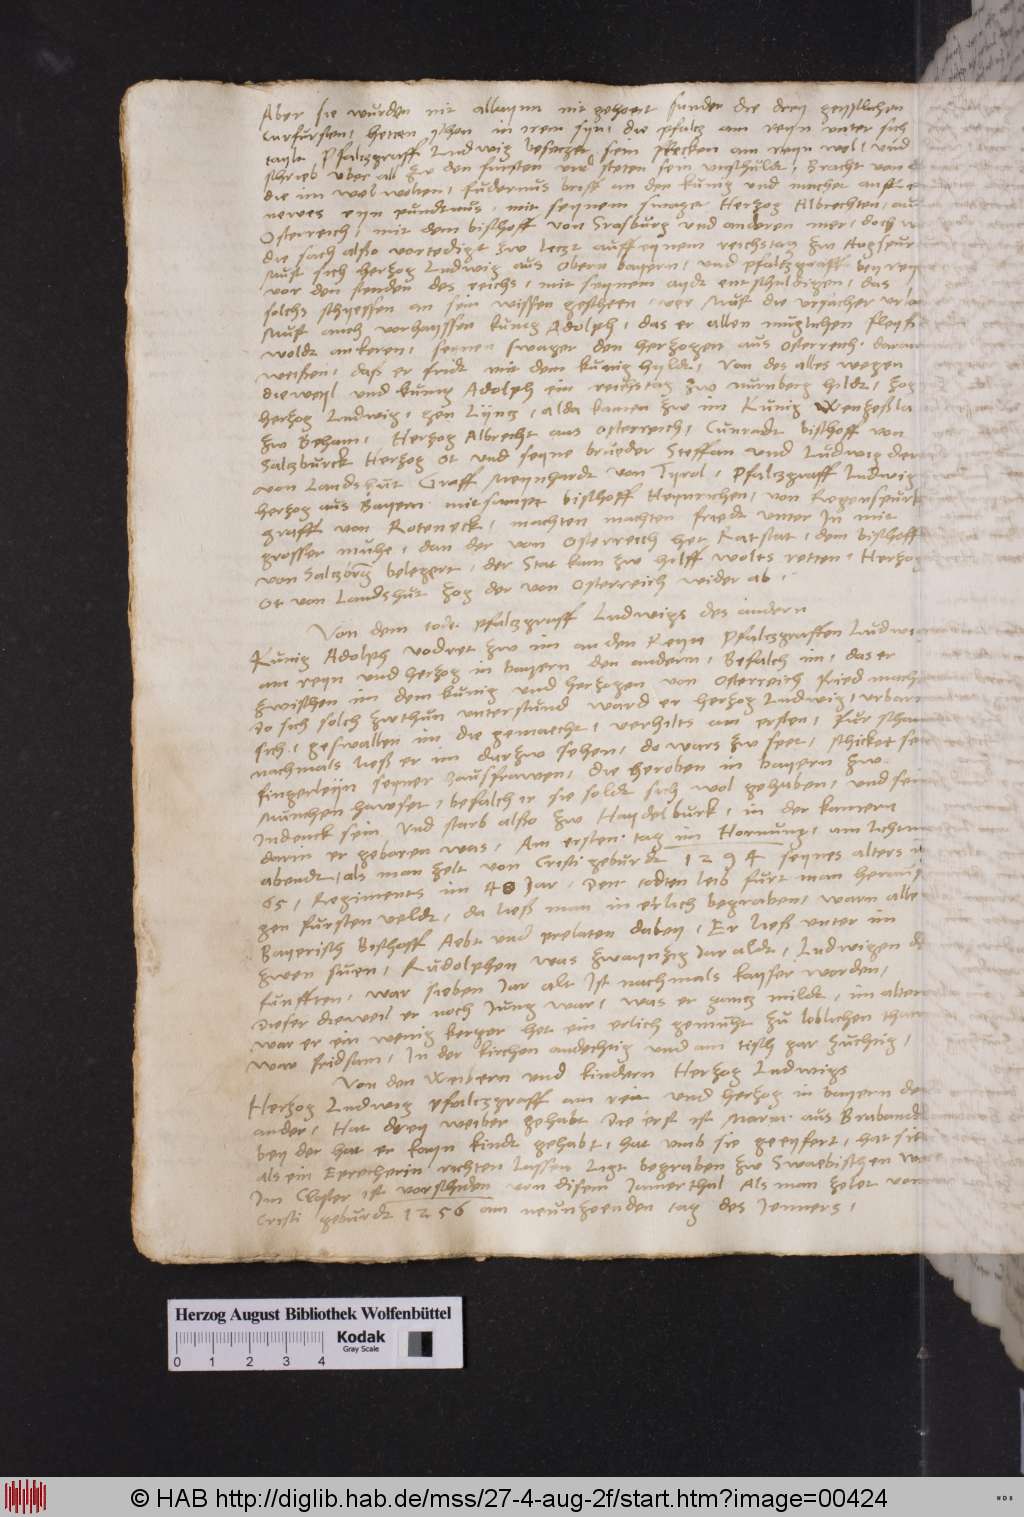 Aber sie wurden nit allaynn nit gehoert sunder die drey geystlichen
Curfursten, hetten schon in irem syn, die pfaltz am reyn unter sich
taylt Pfaltzgraff Ludwig besetzet sein flecken am reyn wol, und
schrieb uber all zw den fursten und steten sein unschuldt, Bracht von
die im wol wolten, Fudernus brieff an den kunig und machet auff
newes eyn pundtnus, mit seynem swager Herzog Albrechten, aus
Osterreich, mit dem bischoff von Strasburg und anderen mer, doch
die sach also vortedigt zw letzt auff eynem reichstag zw Augspur
Must sich herzog Ludwig aus Obern bayern, und pfaltzgraff bey reyn
vor den stenden des reichs, mit seynem aydt entschuldigen, das
solchs schyessen an sein wissen gescheen, wer Must die ursacher
Must auch vorhayssen kunig Adolph, das er allen muglichen fleyß
woldt ankeren, seynen swager den herzogen aus Osterreich daran
weißen, daß er fridt mit dem kunig hyldt, Von des alles wegen
dieweyl und kunig Adolph ein reichstag zw nurnberg hildt, zog
herzog Ludwig, gen Lyntz, alda kamen zw im Kunig Wentzeßla
zw Beham, Herzog Albrecht aus Osterreich, Cunradt bischoff von
Saltzburck Herzog Ot und seyne brueder Steffan und Ludwig der
von Landshut Graff Meynhardt von Tyrol, Pfaltzgraff Ludwig
herzog aus Bayern mitsampt bischoff Heynrichen, von Regenspurk
graff von Roteneck, machten machten friedt unter In mit
grosser muhe, dan der von Osterreich het Ratstat, dem bischoff
von Saltzborg belegert, der Stat kam zw hilff wolts retten, Herzog
Ot von Landshut zog der von Osterreich wider ab.
Von dem tode pfaltzgraff Ludwigs des andern
Kunig Adolph vodret zw im an den Reyn Pfaltzgraffen Ludwi
am reyn und herzog in bayern den andern, Befalch im, das er
zwischen im dem kunig und herzogen von Osterreich Fried mach
do sich solch zwthun unterstund ward er herzog Ludwig,
sich, geswallen im die gemaecht, verhilts am ersten, fur scham
nachmals ließ er im darzw sehen, do wars zw spet, schicket sei
fingerleyn seyner Hausfrawen, die heroben in bayern zw
Munchen hawset, befalch ir sie soldt sich wol gehaben, und sein
Indenck sein Und starb also zw Haydelburk, in der kamern
darin er geboren was, Am ersten tag im Hornung, am lichtm
abendt, als man zelt von Cristi geburdt 1294 seynes alters
65, Regiments im 40 Jar, Den todten leib furt man heraus
gen fursten veldt, da ließ man in erlich begraben, warn alle
Bayerisch Bischoff Aebt und prelaten dabey, Er ließ unter im
zwen suen, Rudolphen was zwaynzig Jar aldt, Ludwigen d
funfften, war sieben Jar alt Ist nachmals kayser worden,
Dieser dieweil er noch Jung war, was er gantz mildt, im alter
war er ein wenig kerger het ein erlich gemuht zu loblichen
war fridsam, In der kirchen andechtig und am tisch gar zuchtig,
Von den Weibern und kindern Herzog Ludwigs
Herzog Ludwig pfaltzgraff am rein und herzog in bayern der
ander, Hat drey weiber gehabt Die erst ist Maria aus Brabandt
bey der hat er kayn kindt gehabt, hat umb sie geeyfert, hat sie
als ein Eprecherin richten lassen Ligt begraben zw Swaebischen
Im Closter ist vorschiden von disem Jamerthal Als man zelet von
Cristi geburdt 1256 am neunzeenden tag des Jenners,
Herzog August Bibliothek Wolfenbüttel
Kodak
Gray Scale
0 1 2 3 4
© HAB http://diglib.hab.de/mss/27-4-aug-2f/start.htm?image=00424